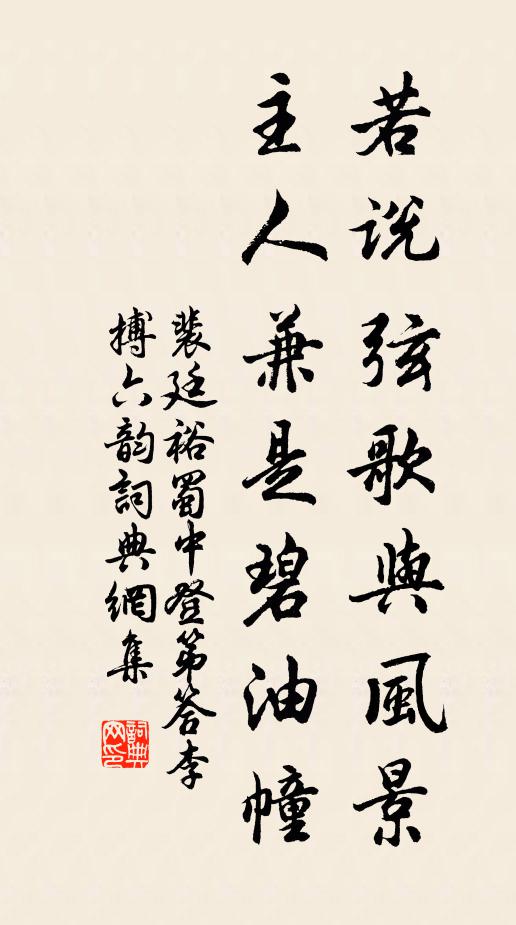 若说弦歌與風景
主人兼是碧油幢
裴廷裕蜀中登第答李
搏六韵詞典網集
詞典
网印